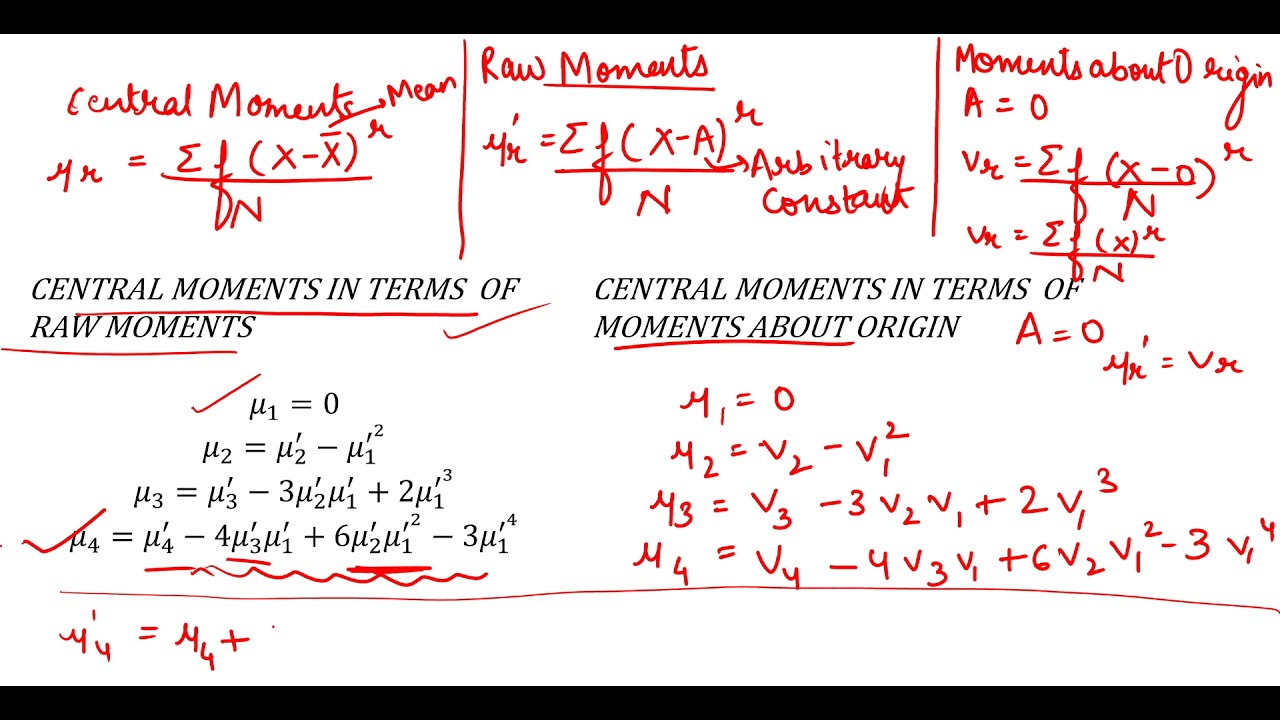 Central Moments → Mean
μr = Σf(X-X̄)^r / N
Raw Moments
μr' = Σf(X-A)^r / N → Arbitrary Constant
Moments about Origin
A = 0
Vr = Σf(X-0)^r / N
Vr = Σf(x)^r / N
CENTRAL MOMENTS IN TERMS OF
RAW MOMENTS
μ₁ = 0
μ₂ = μ₂′ − μ₁′²
μ₃ = μ₃′ − 3μ₂′μ₁′ + 2μ₁′³
μ₄ = μ₄′ − 4μ₃′μ₁′ + 6μ₂′μ₁′² − 3μ₁′⁴
CENTRAL MOMENTS IN TERMS OF
MOMENTS ABOUT ORIGIN
A = 0
μr' = Vr
μ₁ = 0
μ₂ = V₂ − V₁²
μ₃ = V₃ − 3V₂V₁ + 2V₁³
μ₄ = V₄ − 4V₃V₁ + 6V₂V₁² − 3V₁⁴
μ₄' = μ₄ +